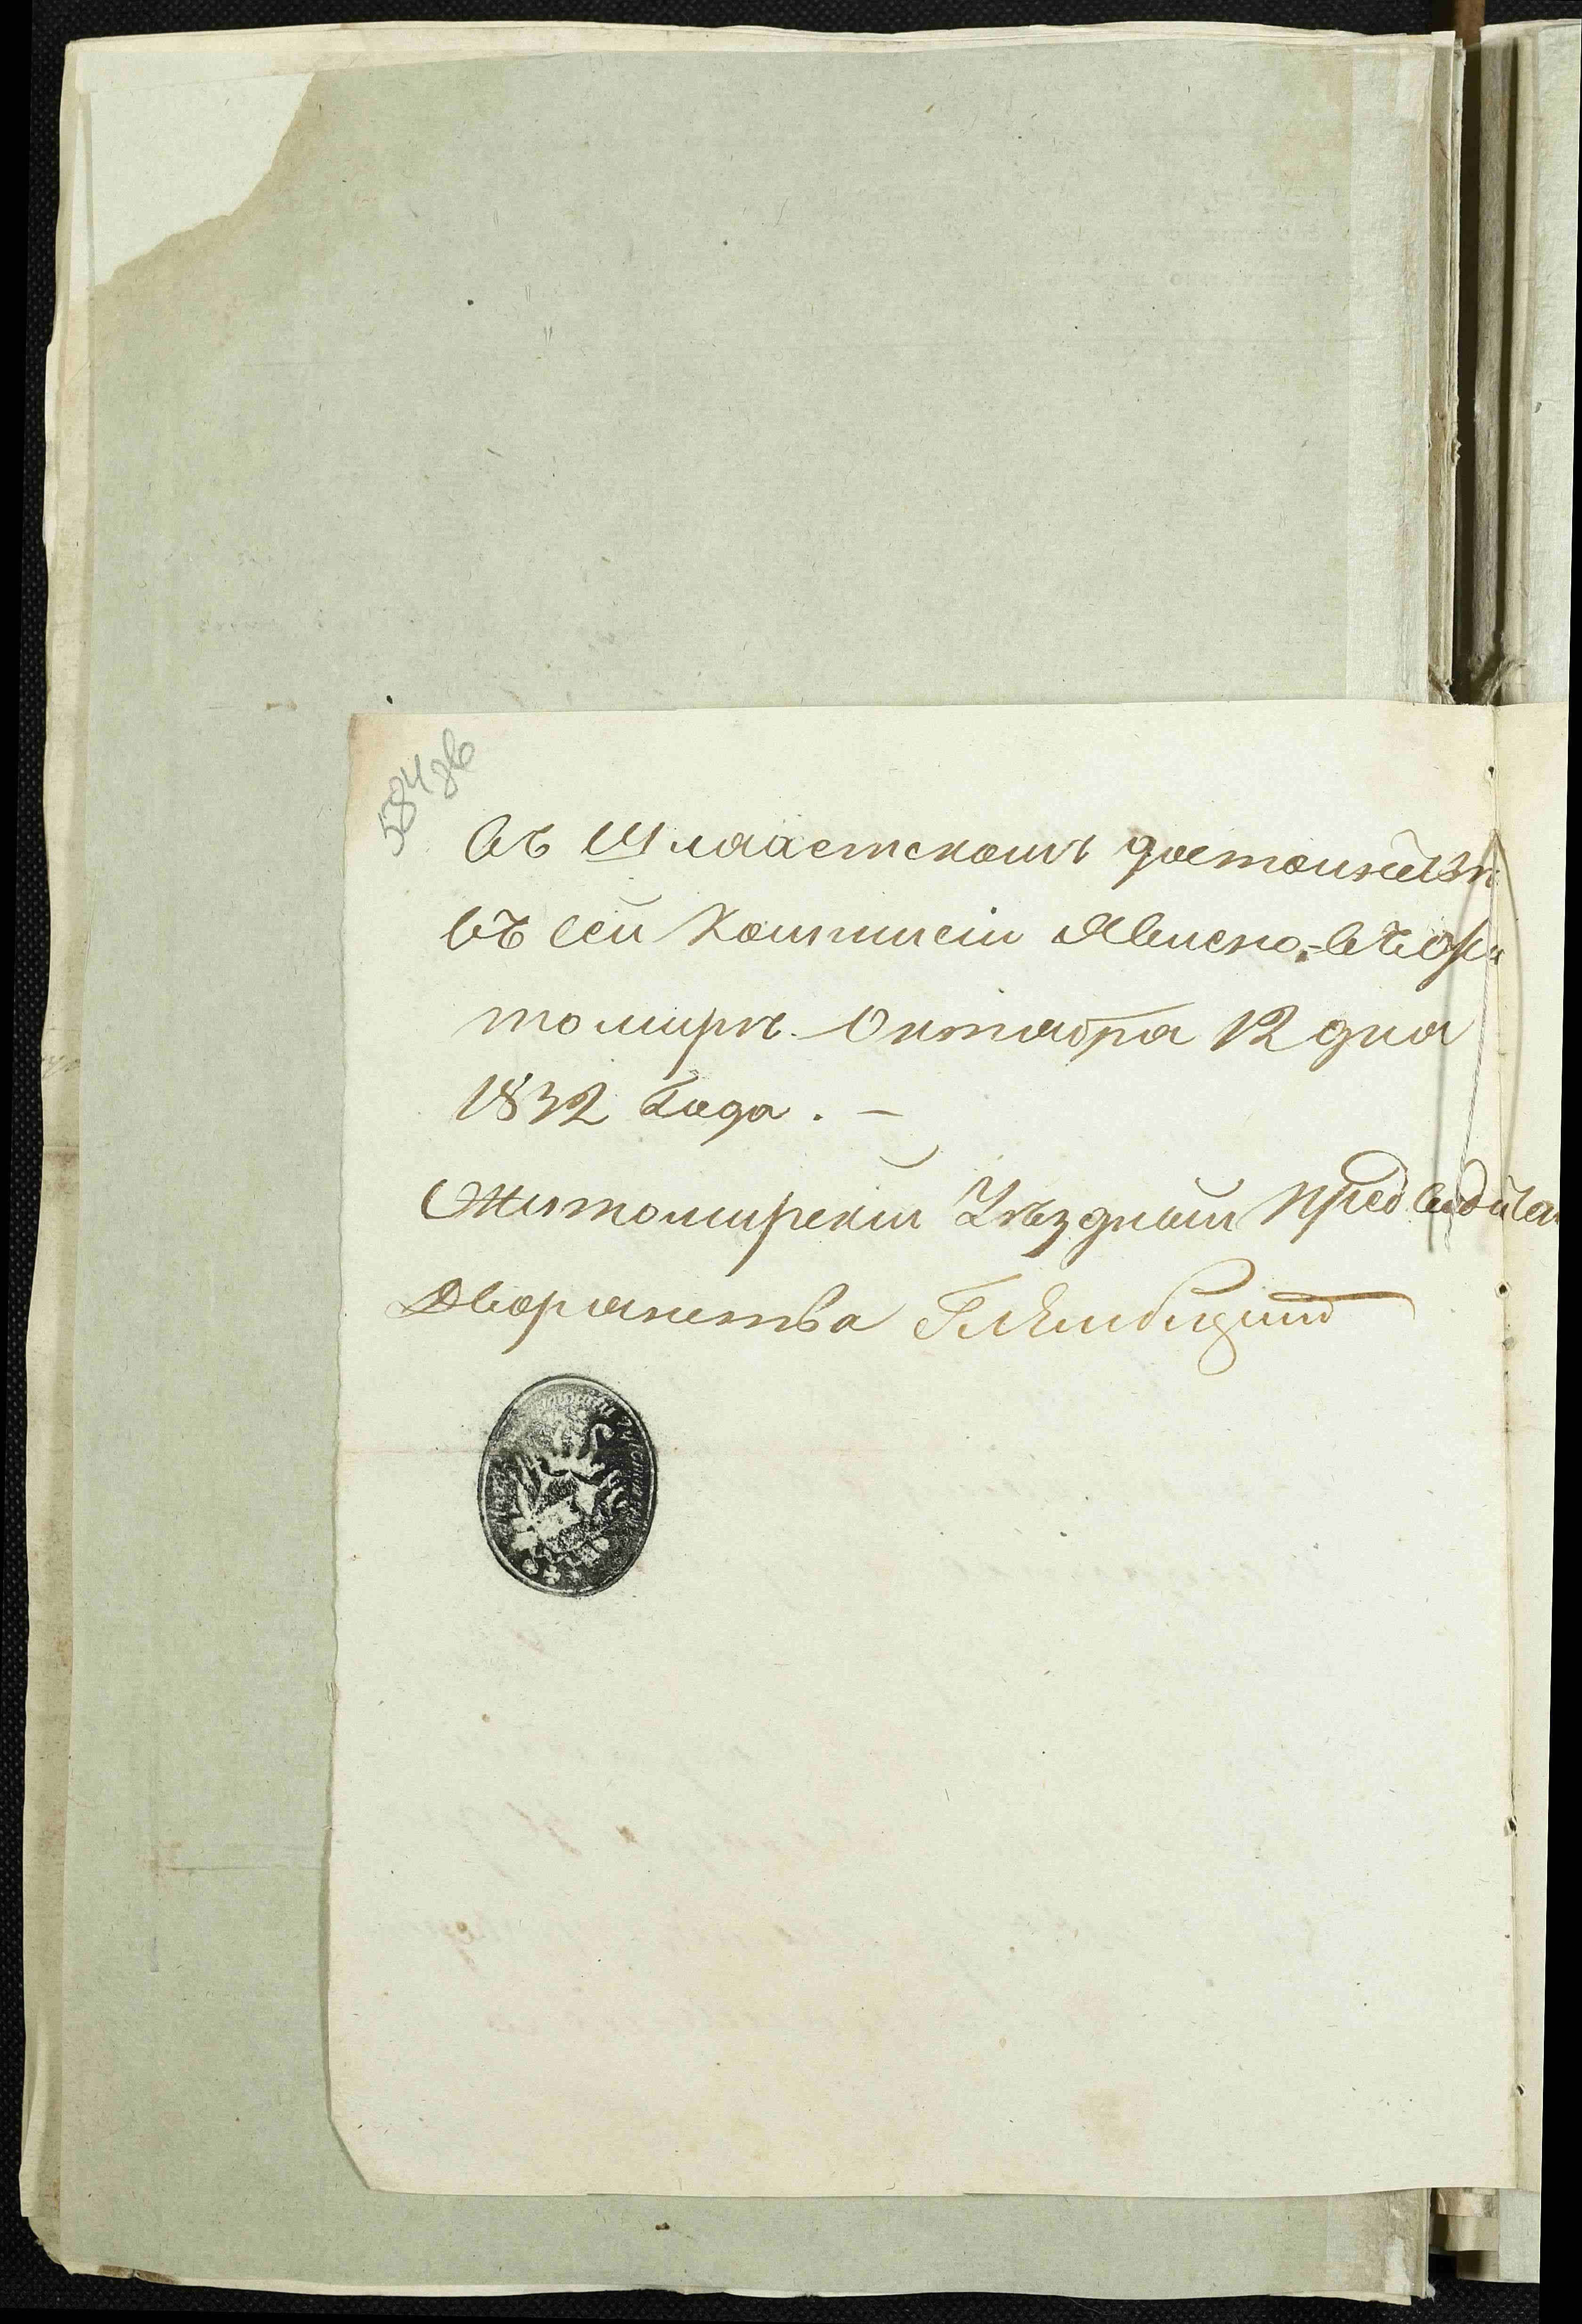 584 зв
въ Шляхетскомъ достоинствѣ
въ сей Коммисіи Явлено, въ Жи
томирѣ. Октября 12 дня
1832 года. —
Житомирскій Уѣздный предводитель
Дворянства